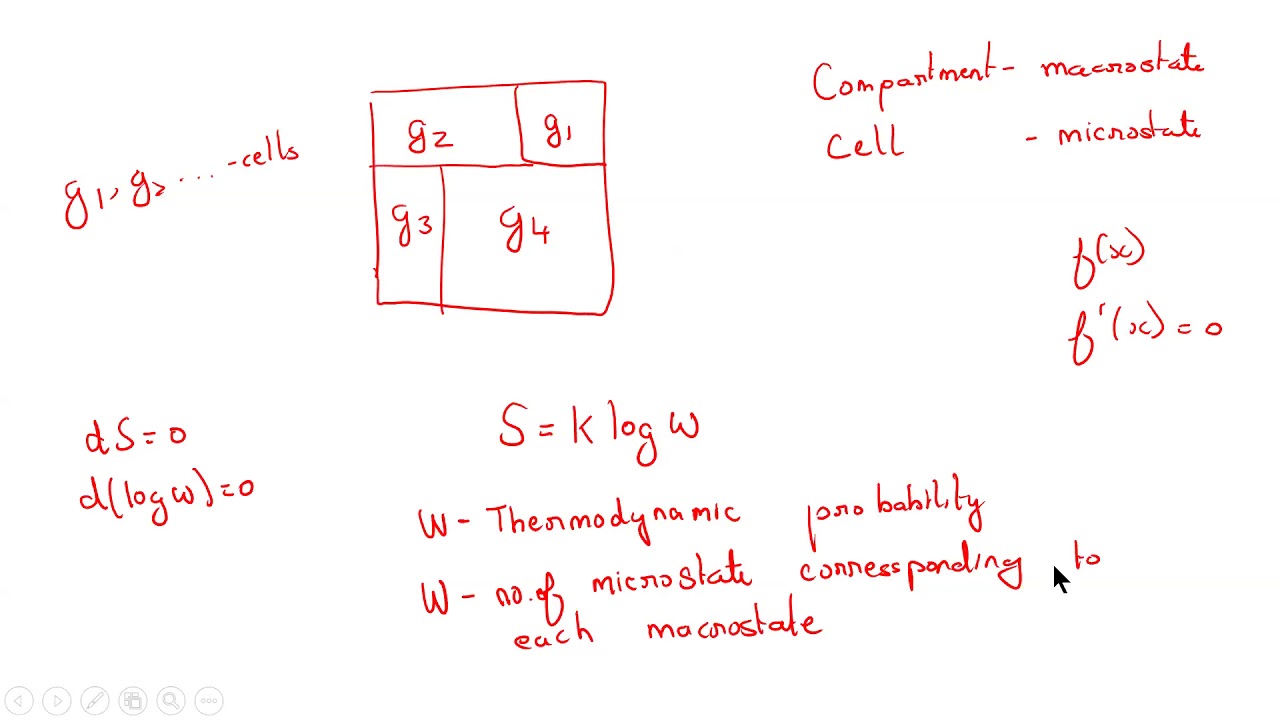 Compartment - macrostate
Cell - microstate
g1, g2 ... - cells
g2 g1
g3 g4
f(x)
f'(x) = 0
dS = 0
d(log w) = 0
S = k log w
W - Thermodynamic probability
W - no. of microstate corresponding to
each macrostate